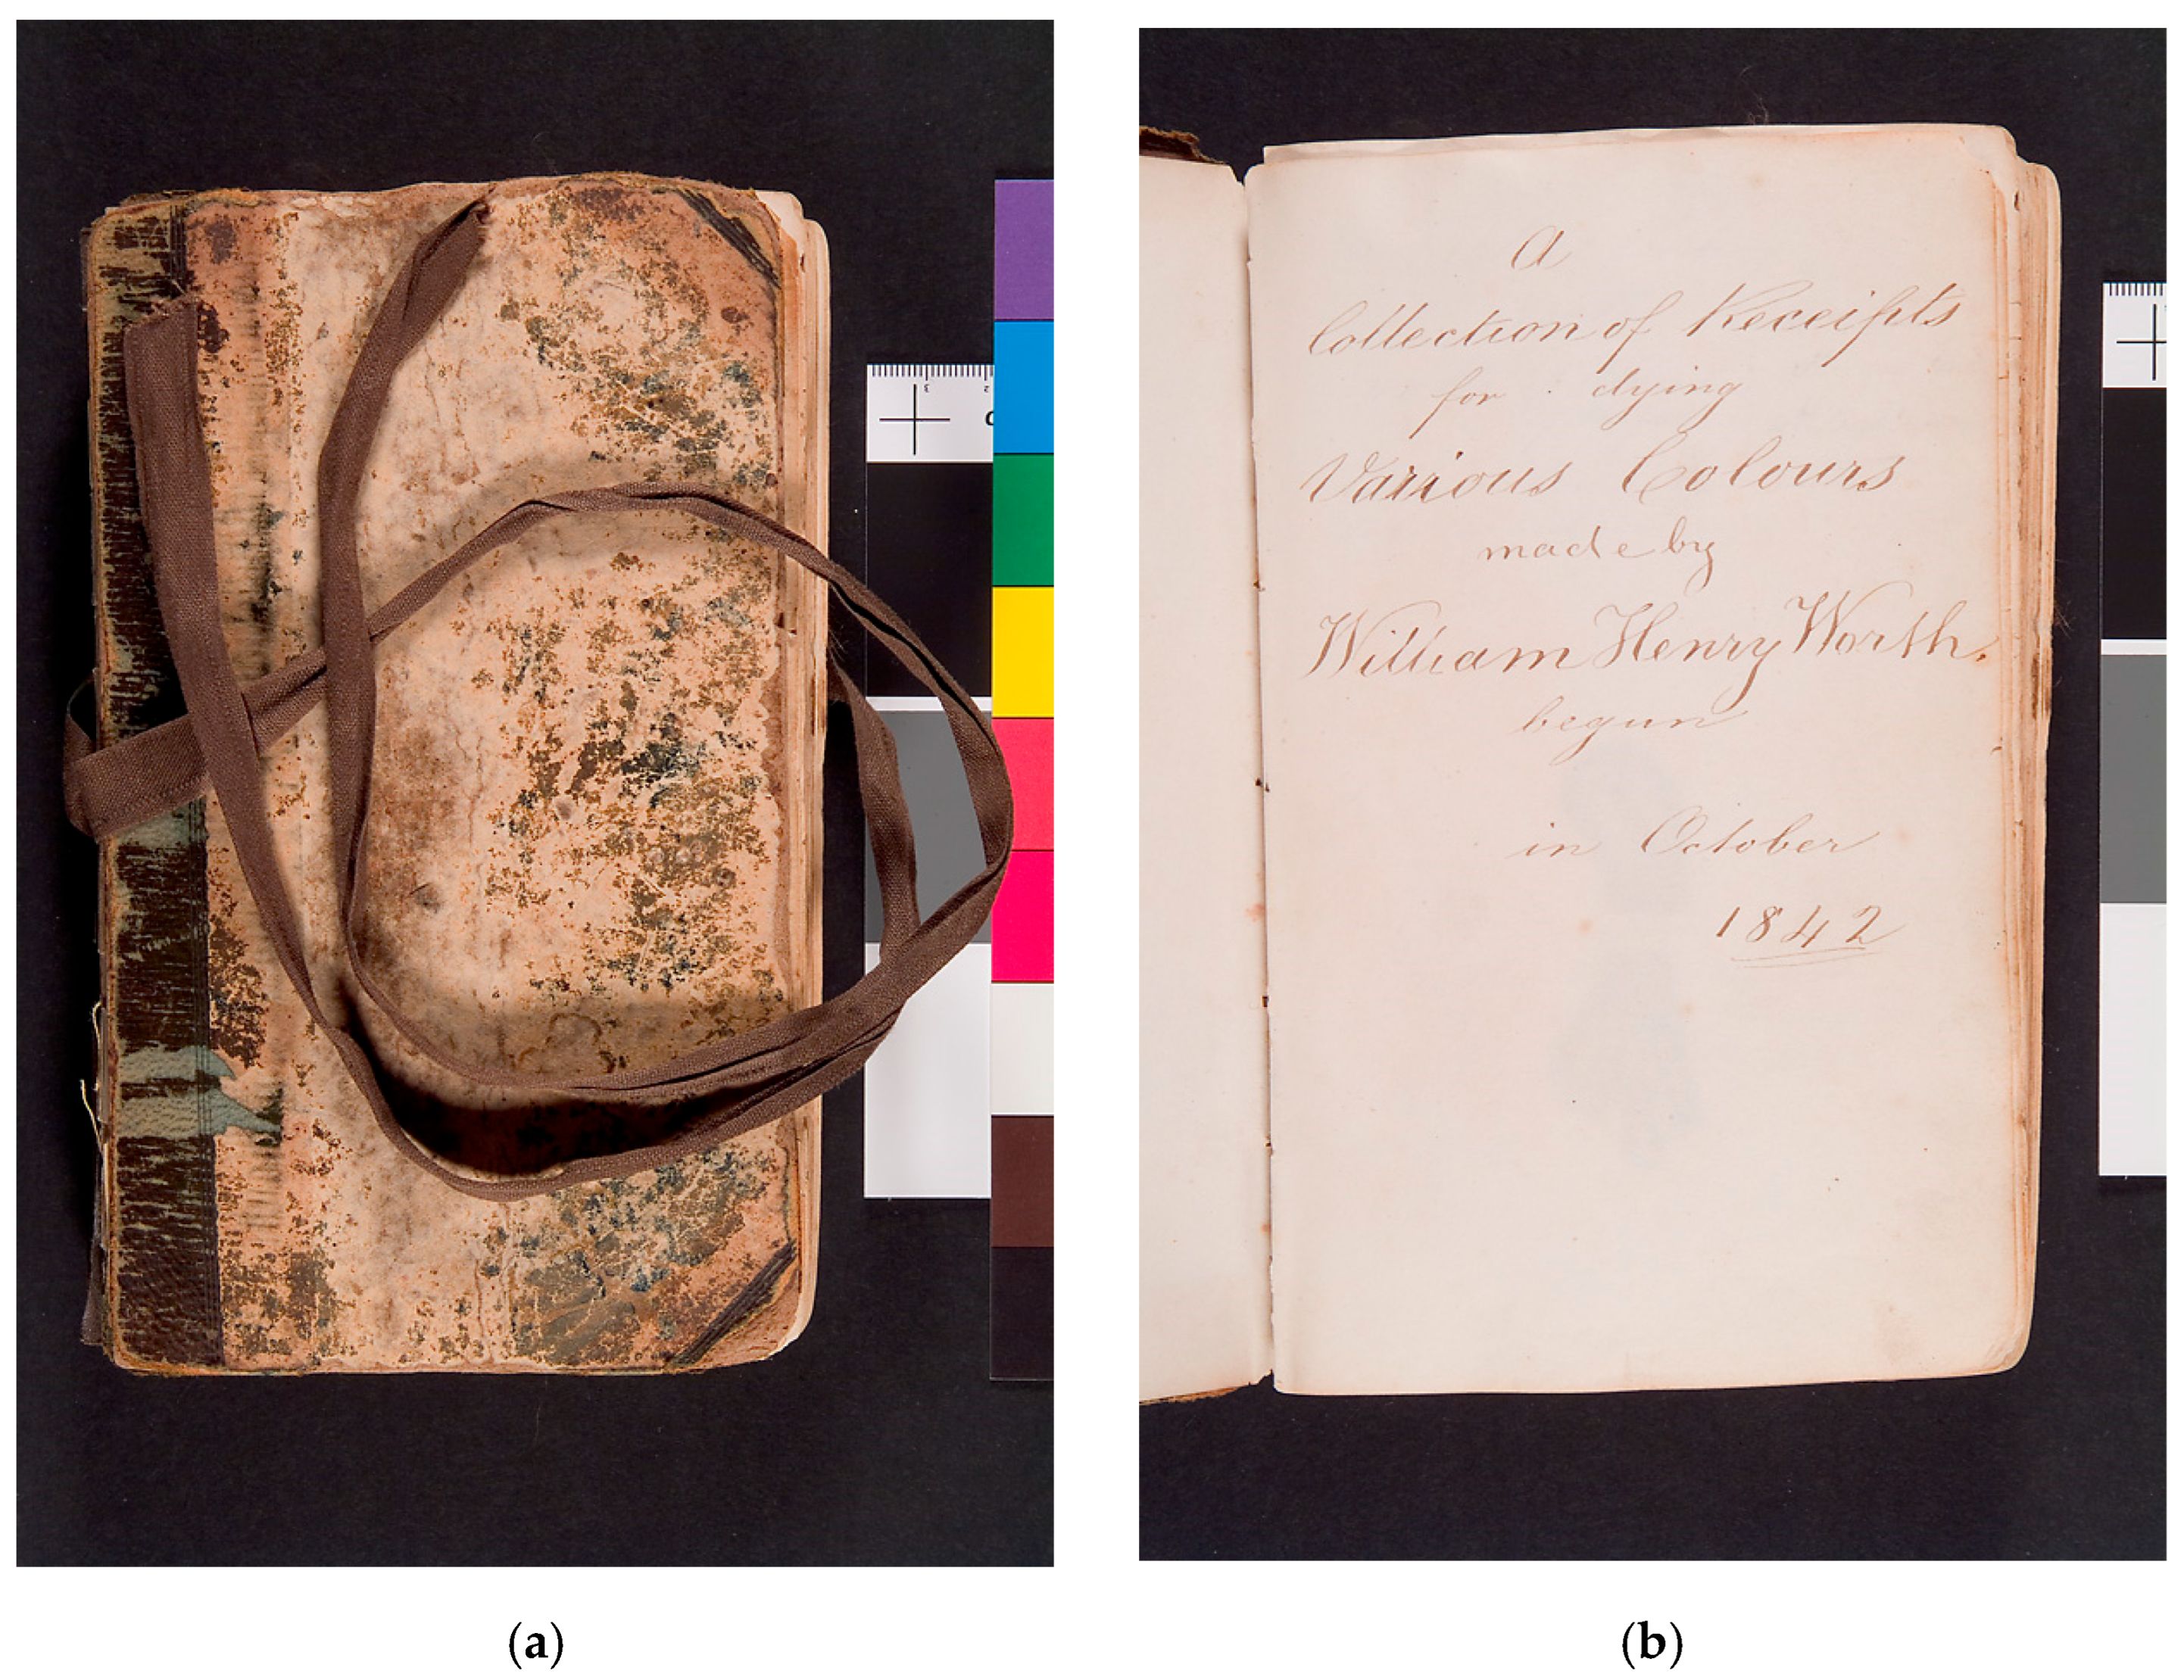 A
Collection of Receipts
for dying
Various Colours
made by
William Henry Worth.
begun
in October
1842
3
2
(a)
(b)